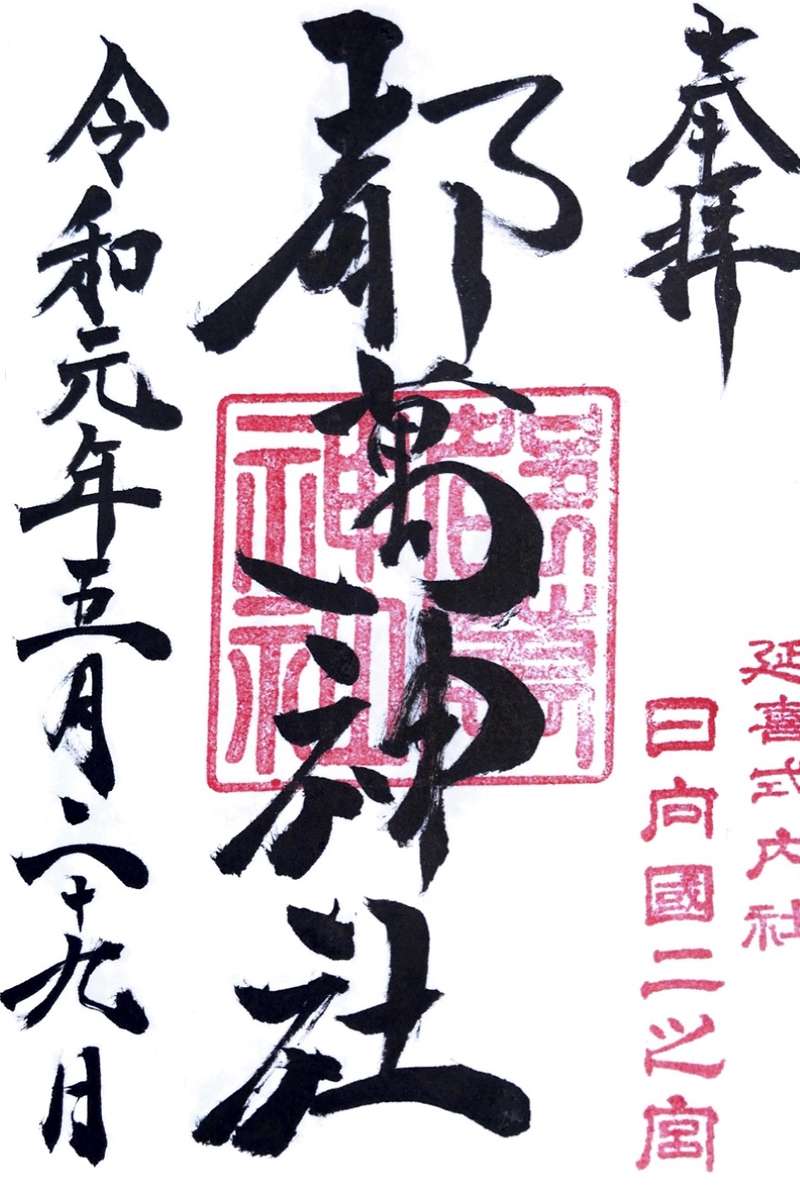 奉拝
延喜式内社
日向國二之宮
都萬神社
令和元年五月二十九日